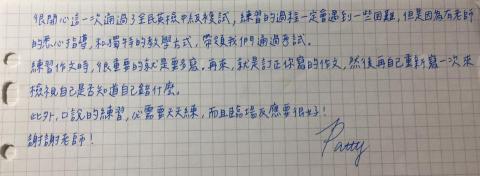 很開心這一次通過了全民英檢中級複試，練習的過程一定會遇到一些困難，但是因為有老師
的悉心指導，和獨特的教學方式，帶領我們通過考試。
練習作文時，很重要的就是要多寫。再來，就是訂正你寫的作文，然後再自己重新寫一次來
檢視自己是否知道自己錯什麼。
此外，口說的練習，必需要天天練，而且臨場反應要很好！
謝謝老師！
Patty